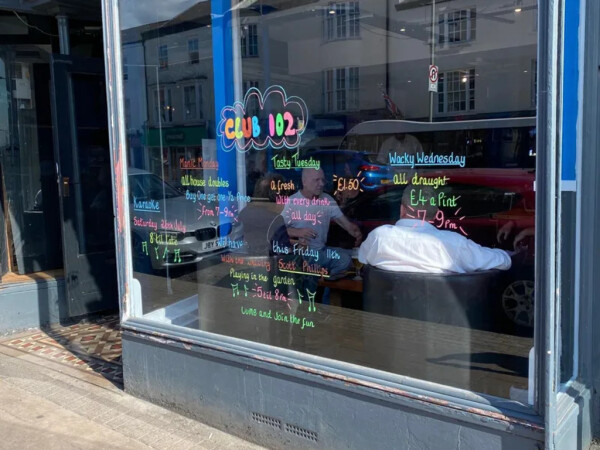 CLUB 102
Manic Monday
All house doubles
Buy One get one ½ Price
From 7-9
Tasty Tuesday
a fresh
£1.50
With every drink
all day
Wacky Wednesday
All draught
£4 a Pint
7-9pm
Karaoke
Saturday
8 til late
this Friday 11th
Scott Phillips
Playing in the garden
5 til 8pm
Come and Join the fun